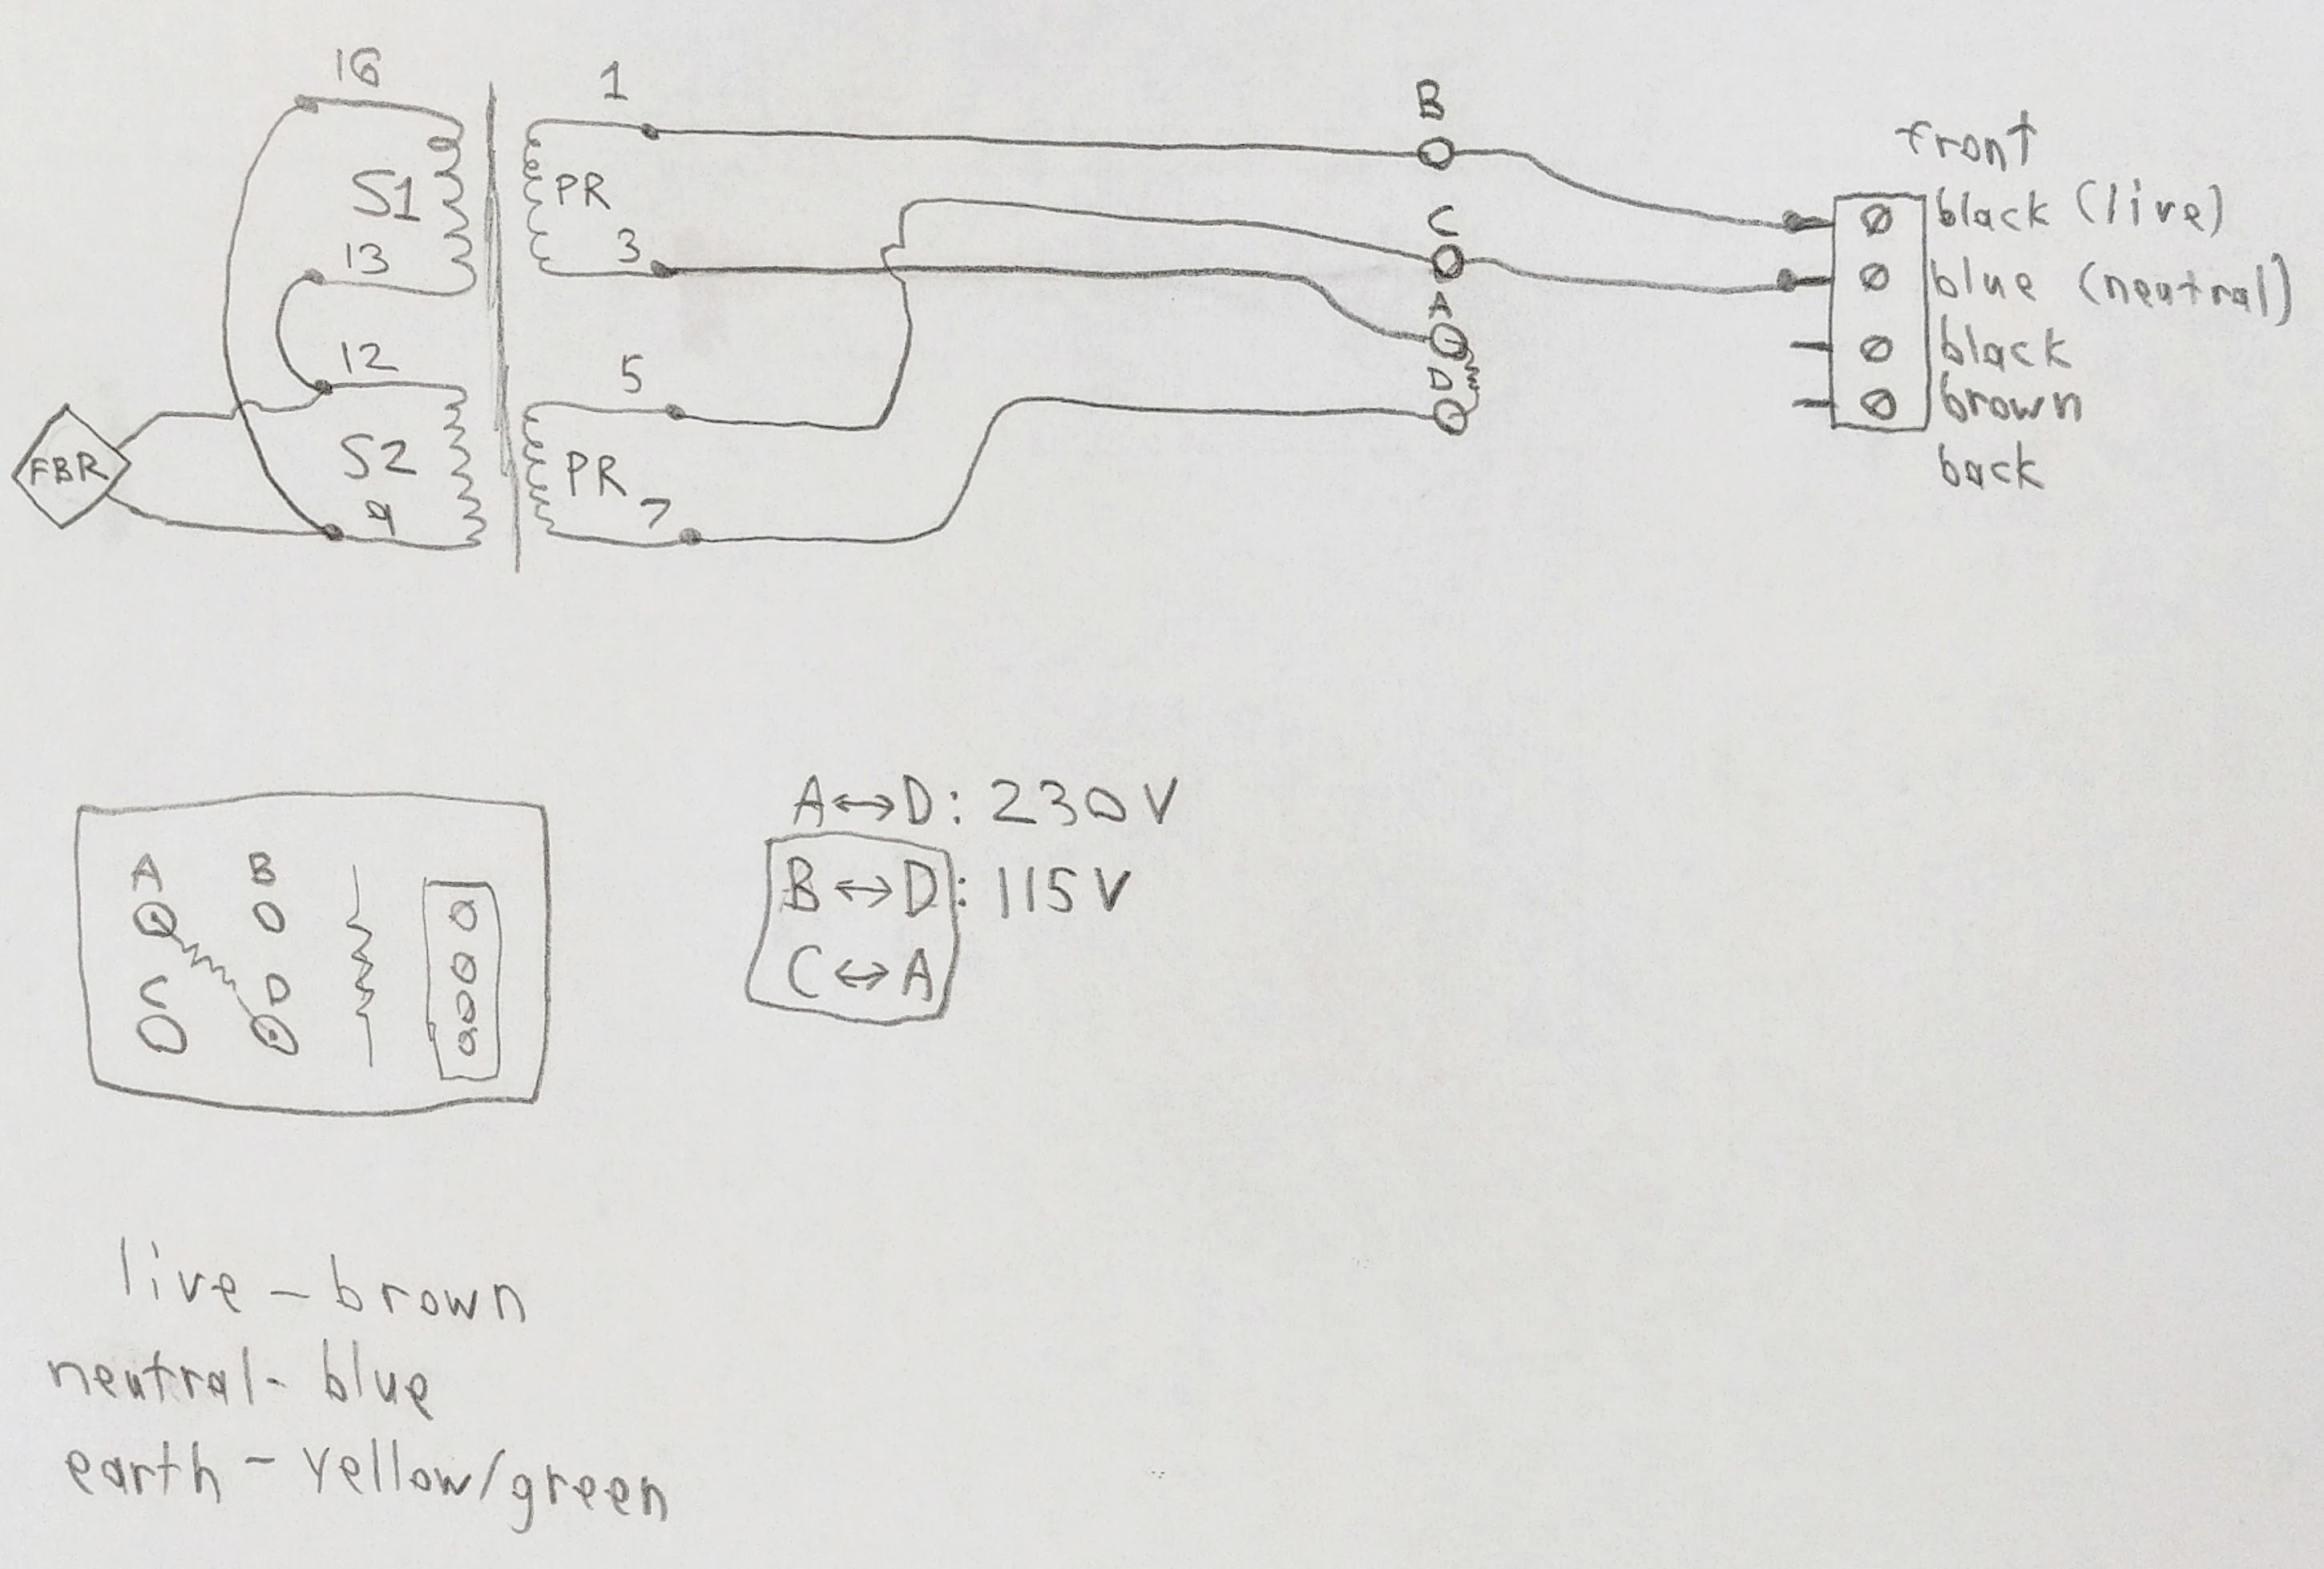 16
1
B
front
S1
PR
black (live)
C
3
13
blue (neutral)
A
black
12
5
D
brown
FBR
S2
PR
back
9
7
A↔D: 230V
B↔D: 115V
C↔A
A B
C D
live - brown
neutral - blue
earth - yellow/green